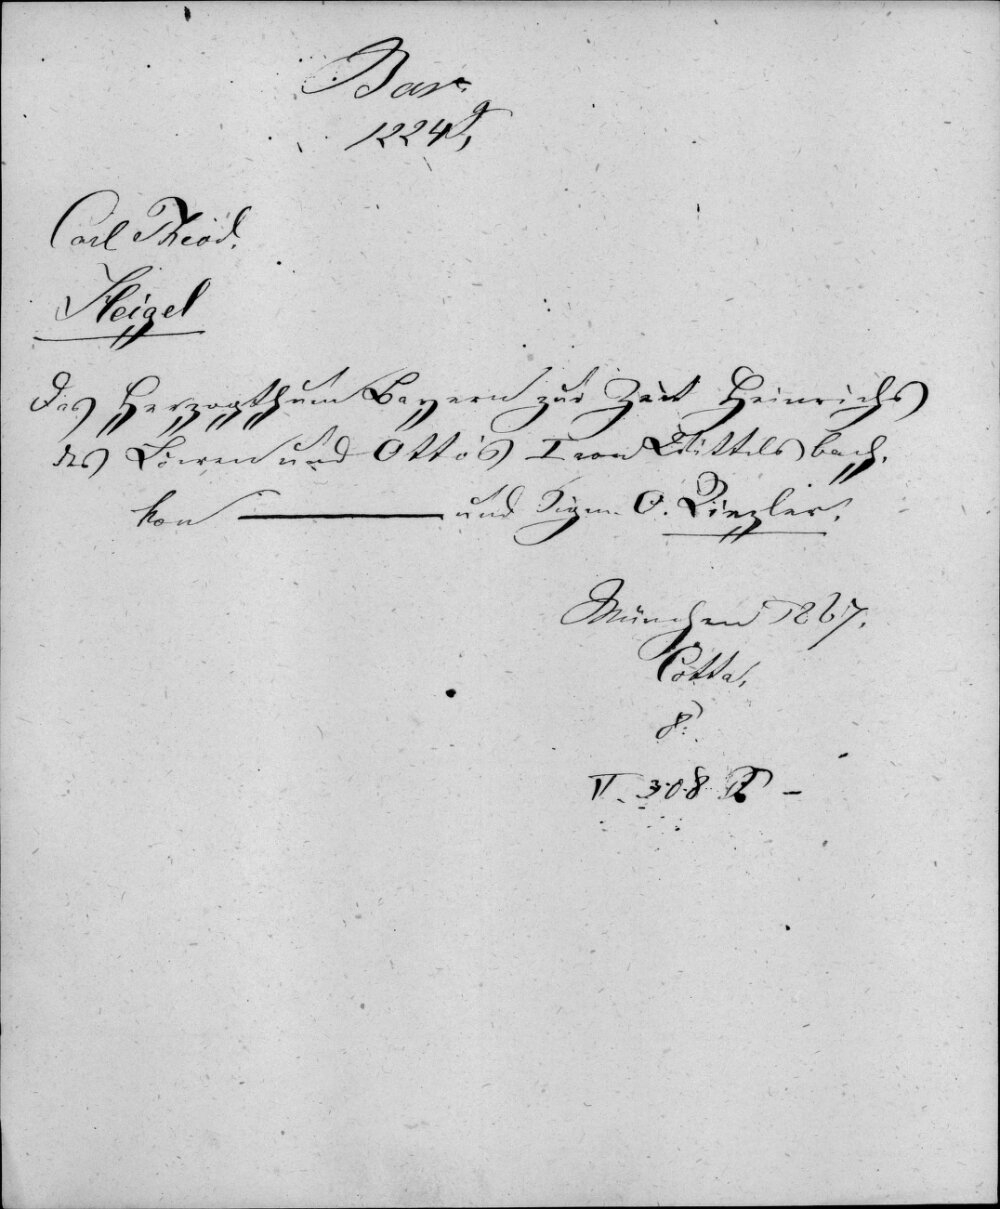 Bav.
1224 q,
Carl Theod.
Heigel
Das Herzogthum Bayern zur Zeit Heinrichs
des Löwen und Otto's I von Wittelsbach.
Von ——— und Sigm. O. Riezler.
München 1867.
Cotta.
8.
VI. 308 S. –